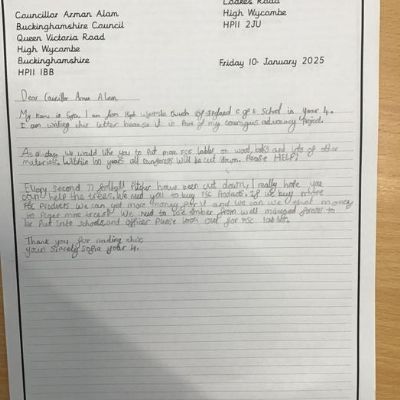 Loakes Road
Councillor Arman Alam High Wycombe
Buckinghamshire Council HP11 2JU
Queen Victoria Road
High Wycombe
Buckinghamshire Friday 10 January 2025
HP11 1BB
Dear Councillor Arman Alam
My name is Sofia I am from High Wycombe Church of England school in year 4.
I am writing this letter because it is Part of my courageous advocacy Project.
As a class we would like you to Put more FSC labels on wood, books and lots of other
materials. Within 100 years all rainforests will be cut down. Please HELP!
Every second 7 football Pitches have been cut down. I really hope you
can help the trees. We need you to buy FSC Products. If we buy more
FSC Products we can get more money for it and we can use that money
to Paper more trees. We need to use timber from well managed forests to
be Put into schools and offices Please look out for FSC labels.
Thank you for reading this
yours Sincerely Sofia year 4.